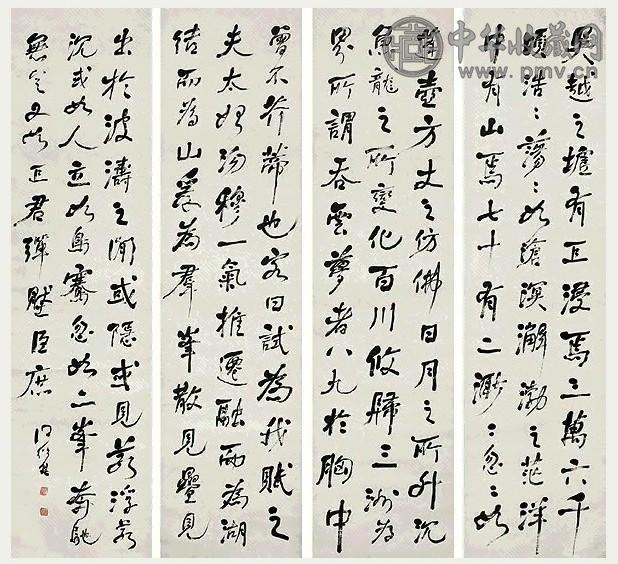 中华收藏网
www.pmv.cn
吳越之墟有巨浸焉三萬六千
頃浩々蕩々如滄溟澥渤之茫洋
中有山焉七十有二渺々忽々如
蓬壺方丈之仿佛日月之所升沉
魚龍之所變化百川攸歸三洲為
界所謂吞雲夢者八九於胸中
曾不芥蒂也客曰試為我賦之
夫太始沕穆一氣推遷融而為湖
結而為山爰為羣峯散見疊見
出於波濤之間或隱或見若浮若
沉或如人立如鳥騫忽如二峯奔馳
無定又如巨君彈壓臣庶
何紹基